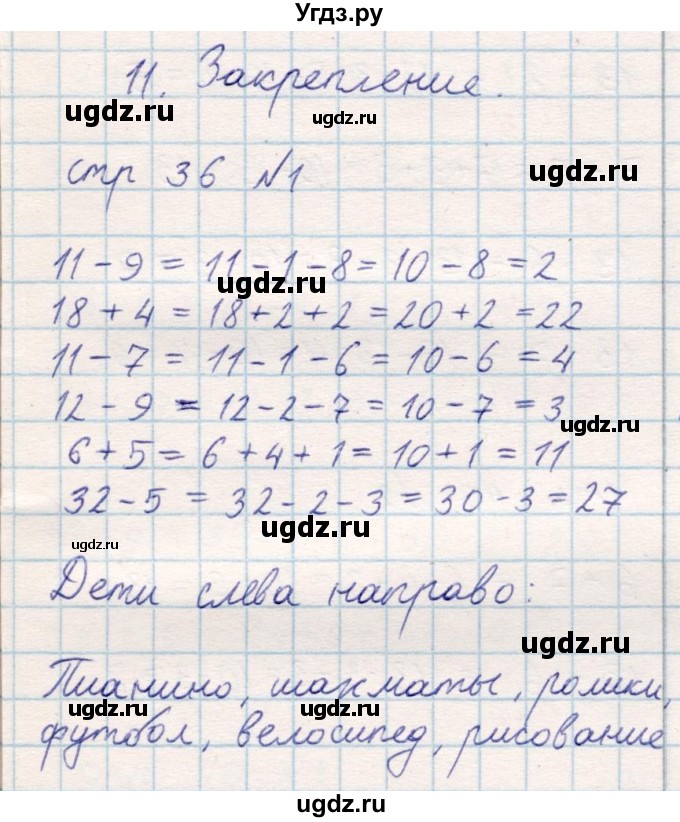 Угдз.ру
11. Закрепление.
ugdz.ru ugdz.ru
ugdz.ru
стр 36 №1
11 - 9 = 11 - 1 - 8 = 10 - 8 = 2
ugdz.ru
18 + 4 = 18 + 2 + 2 = 20 + 2 = 22
11 - 7 = 11 - 1 - 6 = 10 - 6 = 4
12 - 9 = 12 - 2 - 7 = 10 - 7 = 3
ugdz.ru
6 + 5 = 6 + 4 + 1 = 10 + 1 = 11
32 - 5 = 32 - 2 - 3 = 30 - 3 = 27
ugdz.ru
ugdz.ru
Дети слева направо:
ugdz.ru
Пианино, шахматы, ролики,
ugdz.ru ugdz.ru
футбол, велосипед, рисование
ugdz.ru